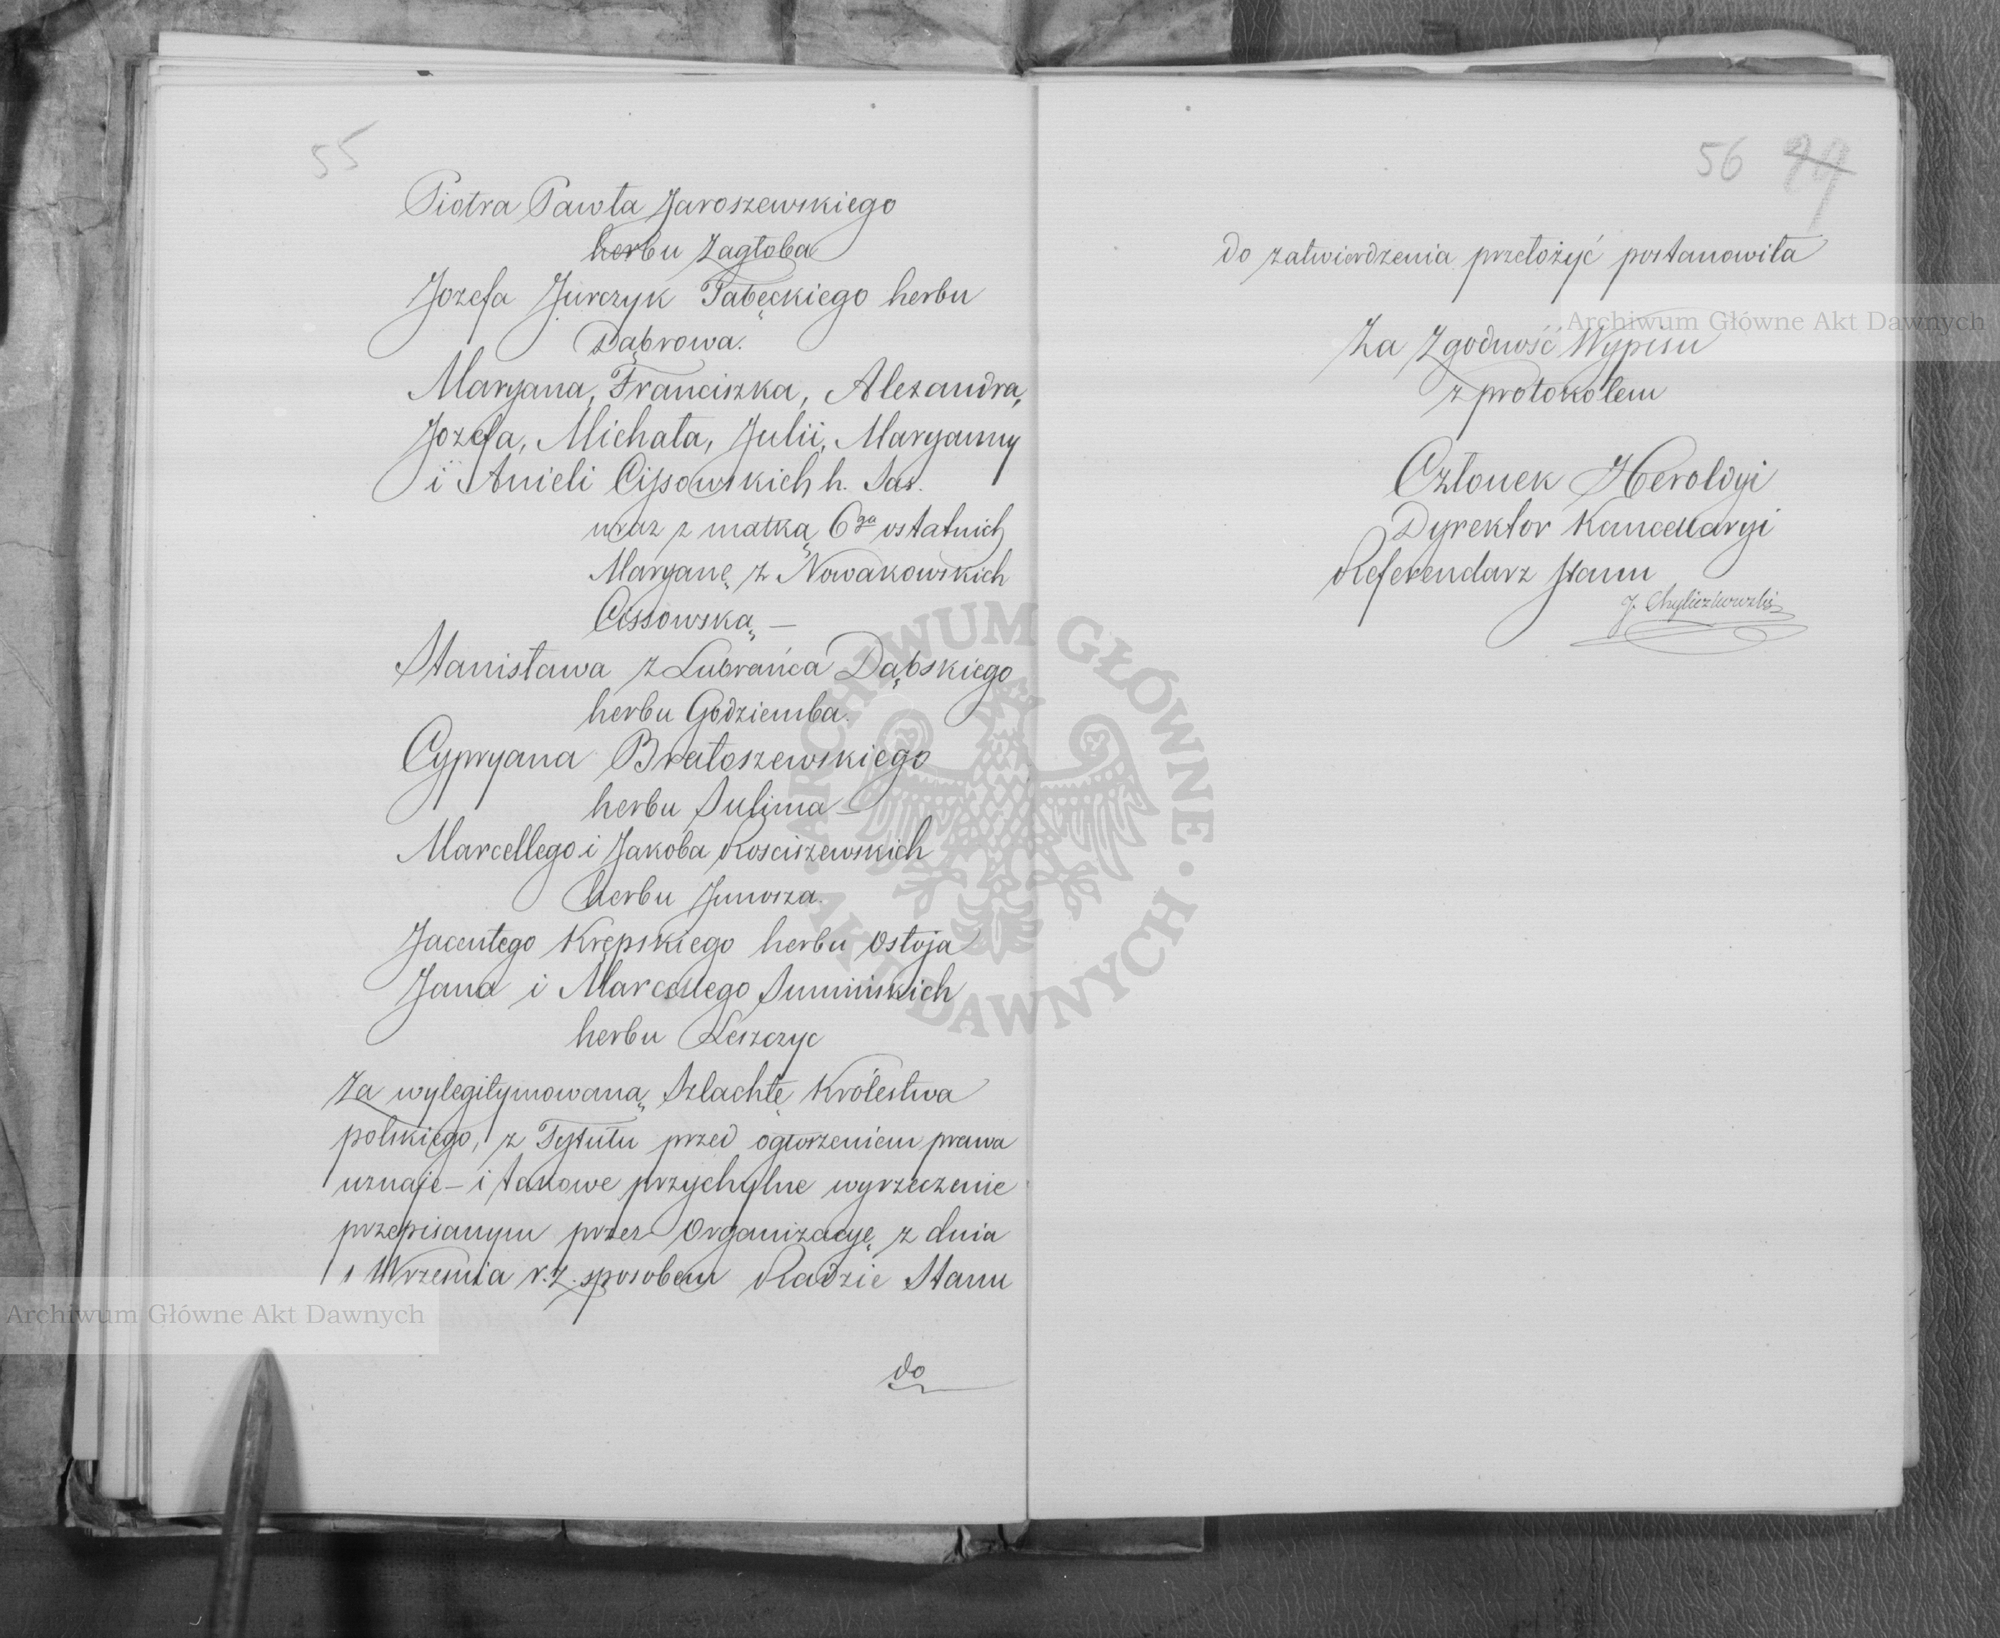 55
Piotra Pawła Jaroszewskiego
herbu Zagłoba
Jozefa Jurczyk Tabęckiego herbu
Dąbrowa.
Maryana, Franciszka, Alexandra,
Jozefa, Michała, Julii, Maryanny
i Anieli Cissowskich h. Sas.
wraz z matką 6ga ostatnich
Maryanę z Nowakowskich
Cissowską —
Stanisława z Lubrańca Dąbskiego
herbu Godziemba.
Cypryana Bratoszewskiego
herbu Sulima —
Marcellego i Jakoba Kosciszewskich
herbu Junosza.
Jacentego Krępskiego herbu Ostoja
Jana i Marcellego Sumińskich
herbu Leszczyc
Za wylegitymowaną Szlachtę Królestwa
polskiego, z Tytułu przed ogłoszeniem prawa
uznaje — i takowe przychylne wyrzeczenie
przepisanym przez Organizacyę z dnia
1 Września r. z. sposobem Radzie Stanu
do
56
do zatwierdzenia przełożyć postanowiła
Za Zgodność Wypisu
z protokołem
Członek Heroldyi
Dyrektor Kancellaryi
Referendarz Stanu
J. Chyliczkowski
Archiwum Główne Akt Dawnych
Archiwum Główne Akt Dawnych
ARCHIWUM GŁÓWNE · AKT DAWNYCH ·